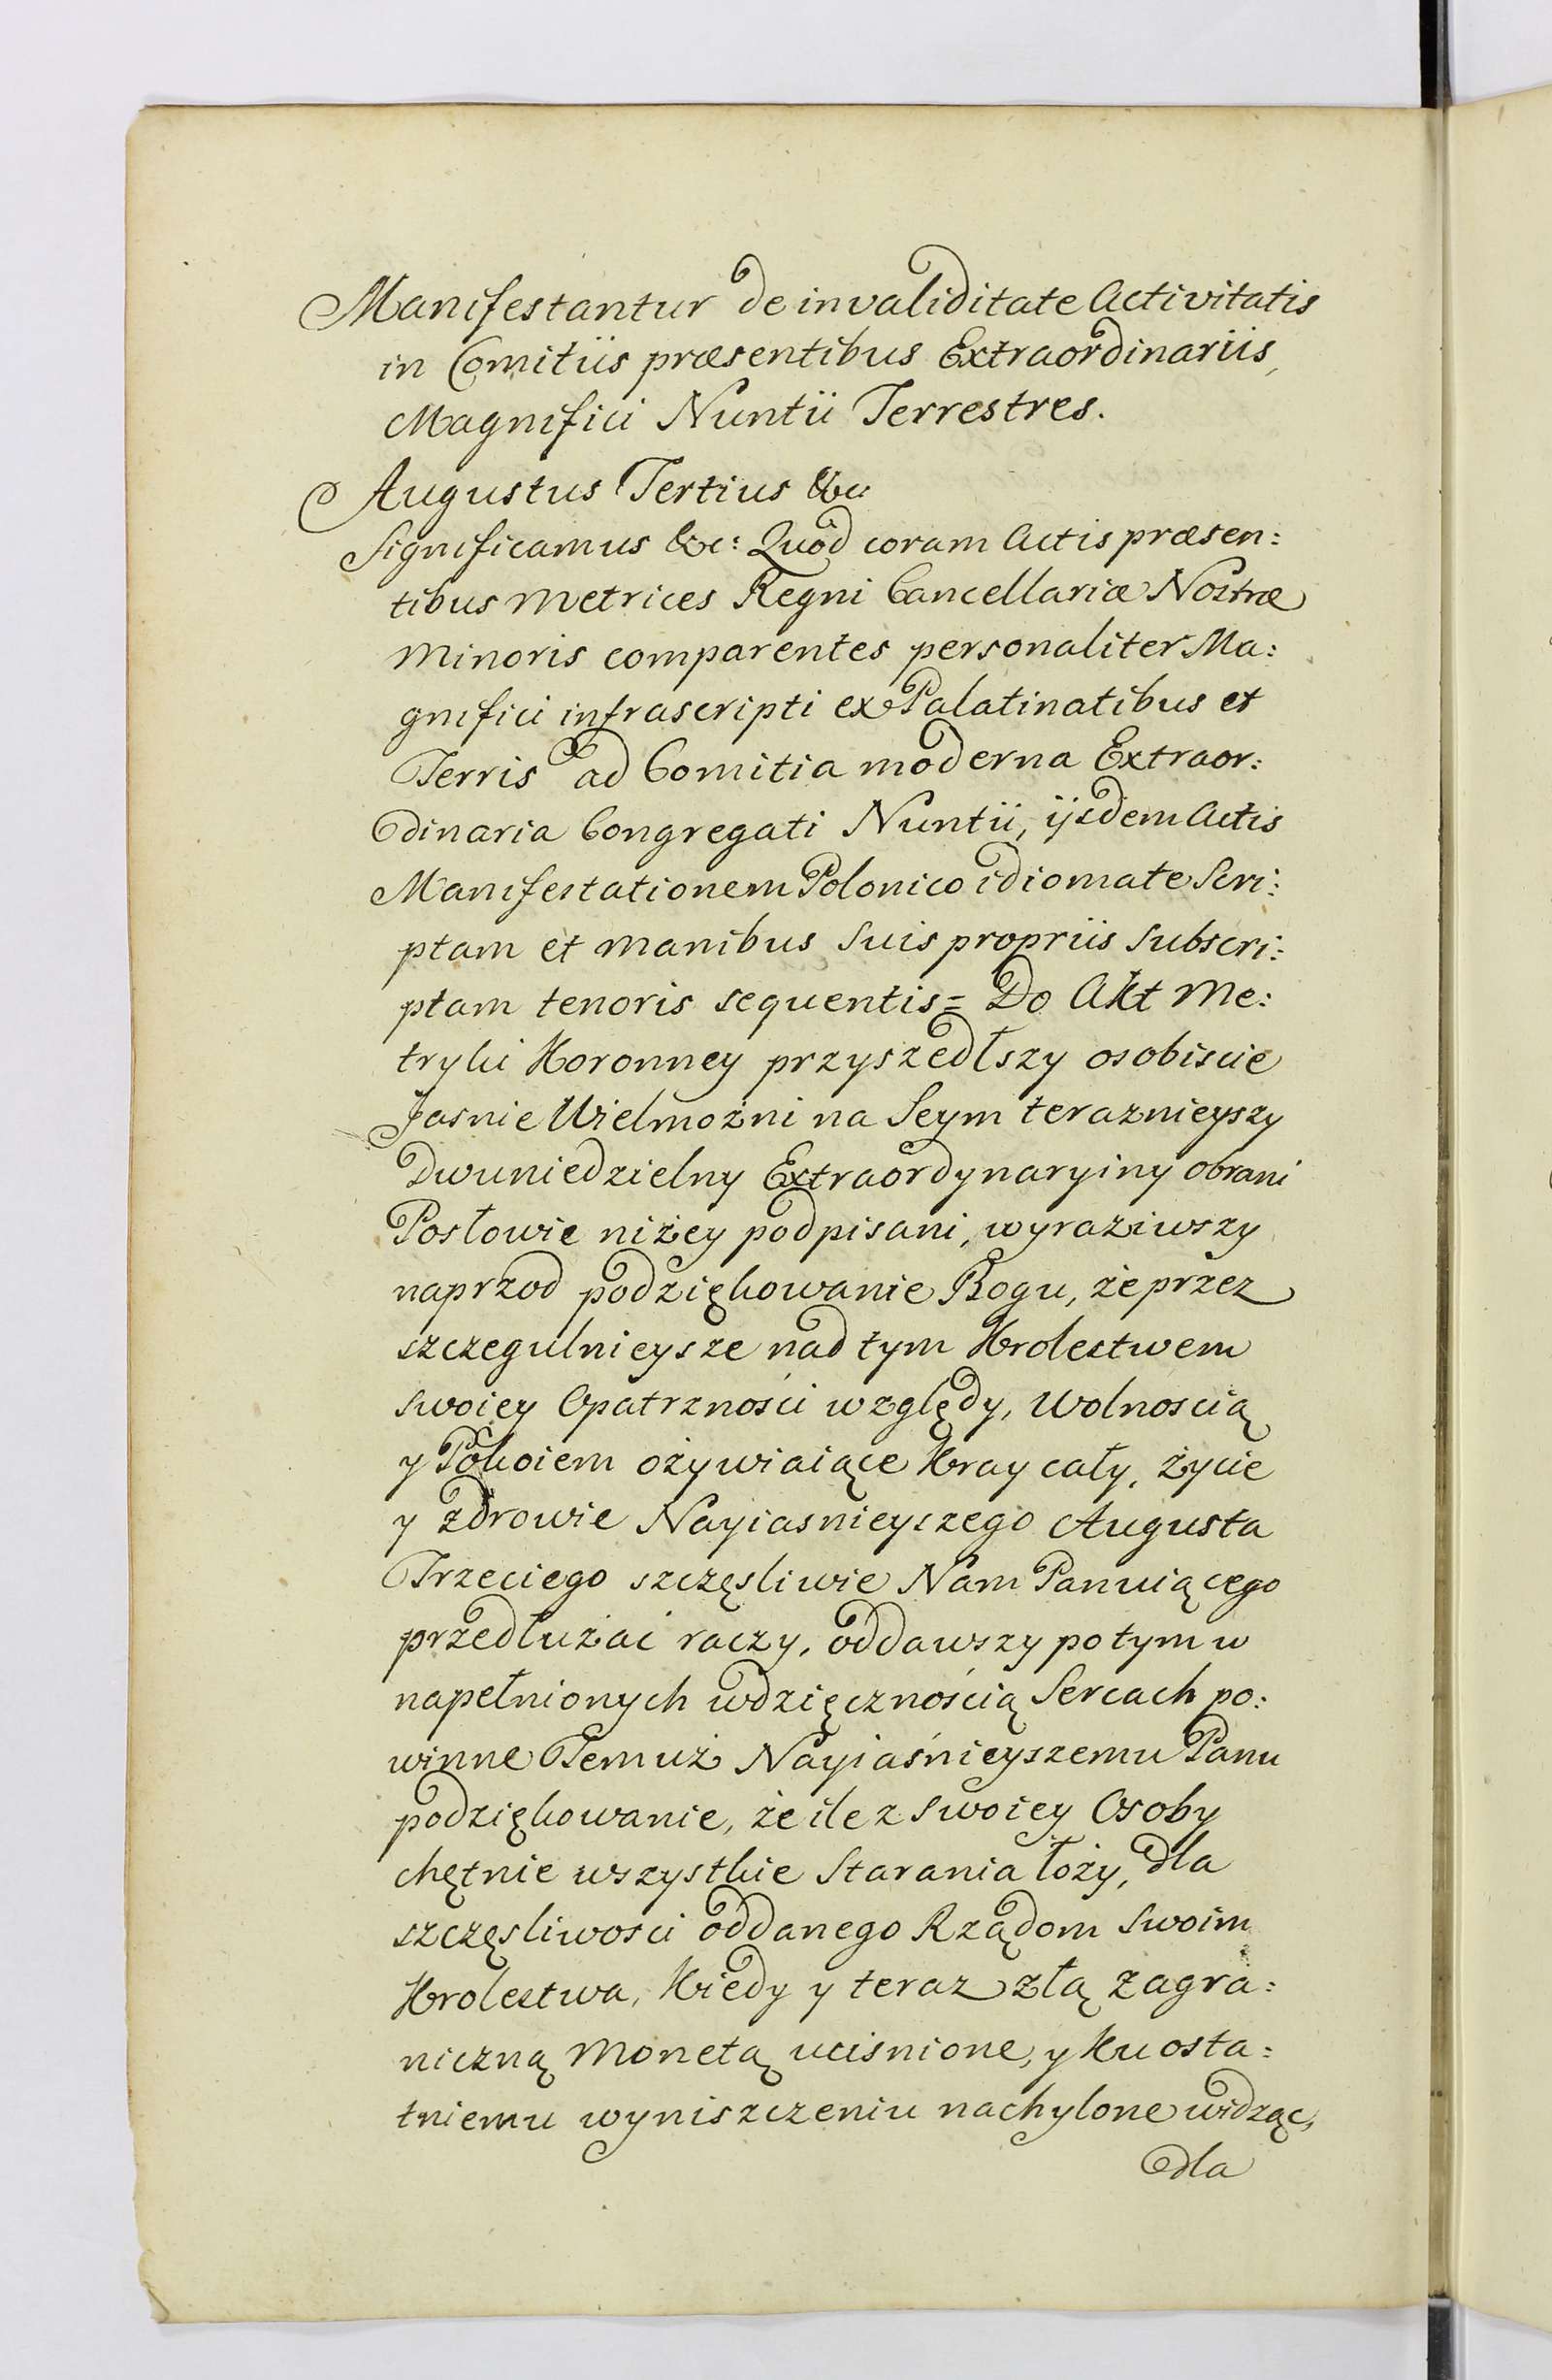 Manifestantur de invaliditate Activitatis
in Comitiis præsentibus Extraordinariis,
Magnifici Nuntii Terrestres.
Augustus Tertius &c:
Significamus &c: Quod coram Actis præsen:
tibus Metrices Regni Cancellariæ Nostræ
Minoris comparentes personaliter Ma:
gnifici infrascripti ex Palatinatibus et
Terris ad Comitia moderna Extraor:
dinaria Congregati Nuntii, ijsdem Actis
Manifestationem Polonico idiomate Scri:
ptam et manibus suis propriis subscri:
ptam tenoris sequentis = Do Akt Me:
tryki Koronney przyszedłszy osobiscie
Jasnie Wielmożni na Seym teraznieyszy
Dwuniedzielny Extraordynaryiny obrani
Posłowie niżey podpisani, wyraziwszy
naprzod podziękowanie Bogu, że przez
szczegulnieysze nad tym Krolestwem
swoiey Opatrzności względy, Wolnoscią
y Pokoiem ożywiaiące Kray cały, życie
y zdrowie Nayiasnieyszego Augusta
Trzeciego szczęsliwie Nam Panuiącego
przedłużać raczy, oddawszy potym w
napełnionych wdzięcznością Sercach po:
winne Temuż Nayiaśnieyszemu Panu
podziękowanie, że ile z swoiey Osoby
chętnie wszystkie Starania łoży, dla
szczęsliwosci oddanego Rządom swoim
Krolestwa, Kiedy y teraz złą zagra:
niczną Monetą ucisnione, y ku osta:
tniemu wyniszczeniu nachylone widząc,
dla